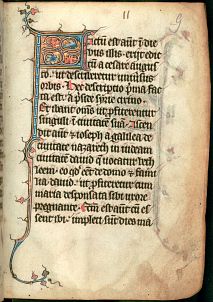 11
Factū est aūt ī die
bus illis · exiit edic
tū a cesare augus
to · ut describeretur uniūsus
orbis · hec descriptio p̄ma fac
ta est · a p̄side syrie cirino ·
Et ibant om̄s ut p̄fiterentur
singuli ī ciuitatē suā · Ascen
dit aūt ⁊ ioseph a galilea de
ciuitate nazareth in iudeam
ciuitatē dauid q̄ uocatur beth
leem · eo qd̛ eēt de domo ⁊ fami
lia dauid · ut p̄fiteretur cum
maria desponsata sibi uxore
pregnante · Cum essent
sent ibi · impleti sūt dies